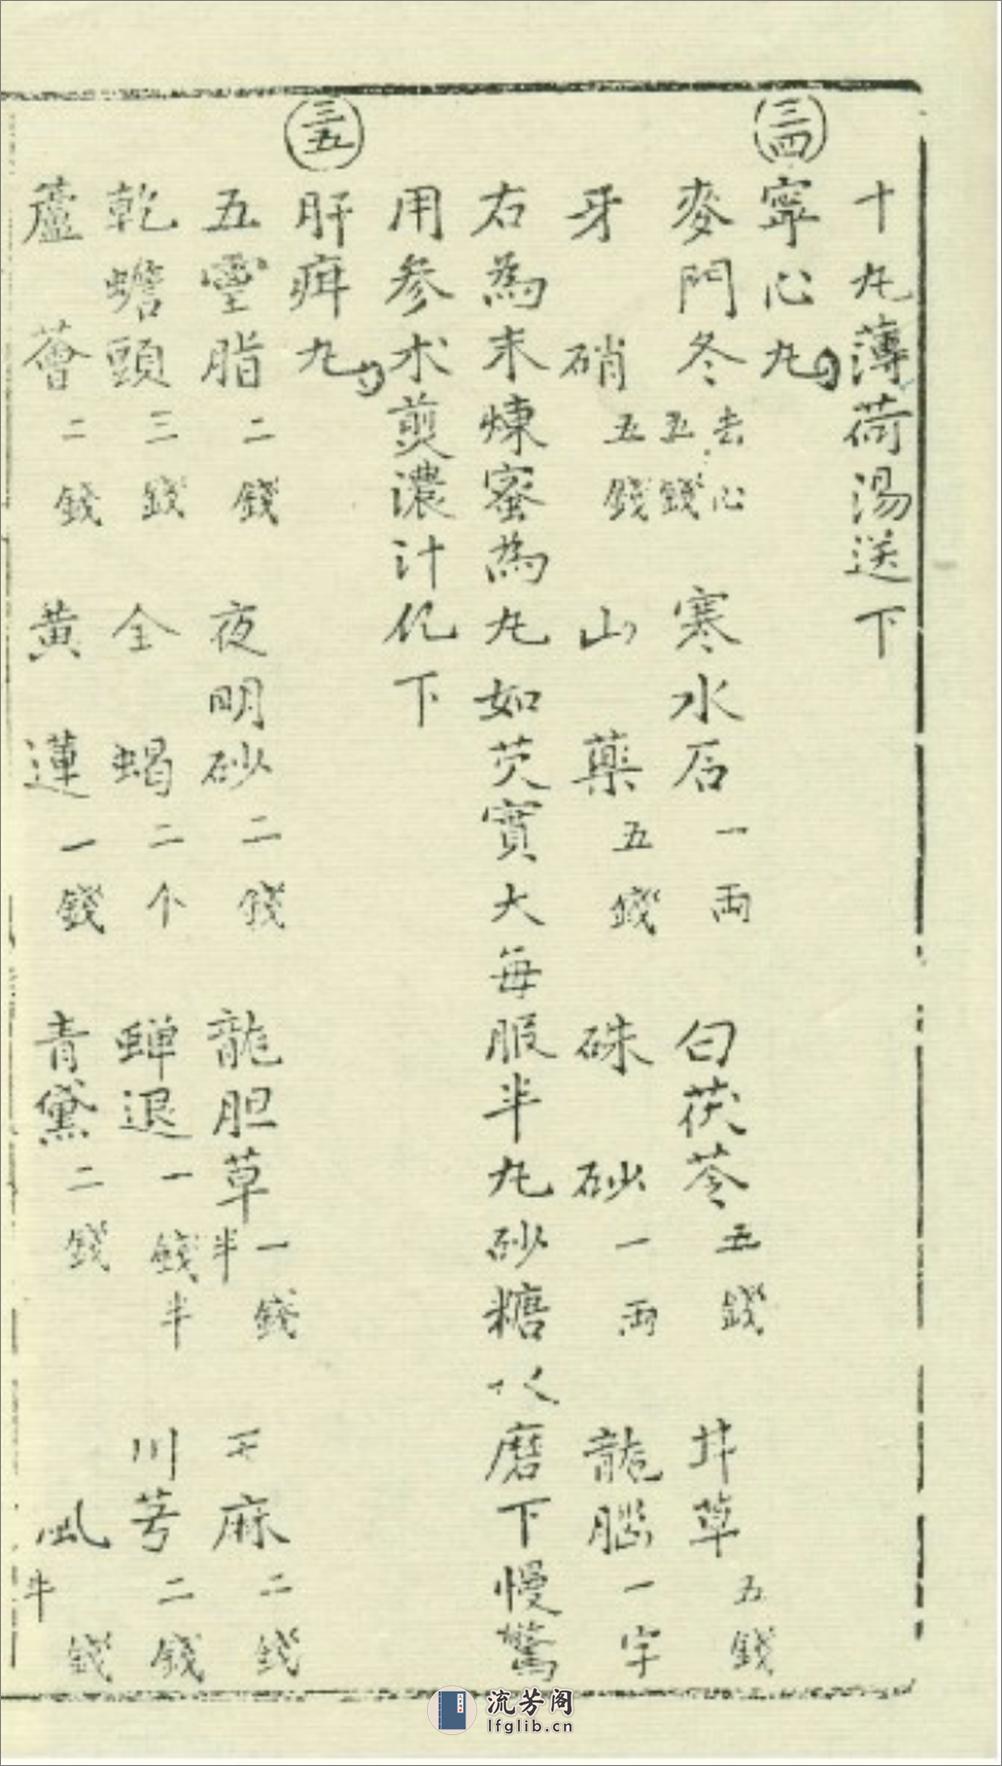 十丸薄荷湯送下
三四 寧心丸
麥門冬去心五錢 寒水石一兩 白茯苓五錢 甘草五錢
牙硝五錢 山藥五錢 硃砂一兩 龍腦一字
右為末煉蜜為丸如芡實大每服半丸砂糖水磨下慢驚
用參朮煎濃汁化下
三五 肝疳丸
五靈脂二錢 夜明砂二錢 龍胆草一錢半 天麻二錢
乾蟾頭三錢 全蝎二个 蝉退一錢半 川芎二錢
蘆薈二錢 黄連一錢 青黛二錢 風 錢半
流芳阁
lfglib.cn